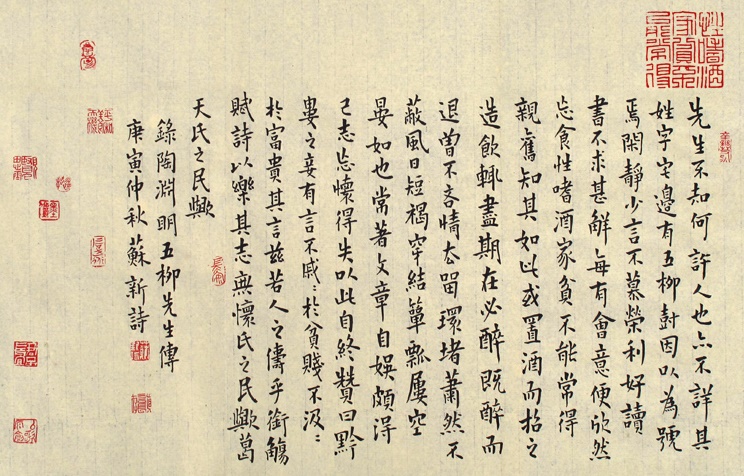 性嗜酒
家貧不
能常得
先生不知何許人也亦不詳其
姓字宅邊有五柳尌因以為號
焉閑靜少言不慕榮利好讀
書不求甚解每有會意便欣然
忘食性嗜酒家貧不能常得
親舊知其如此或置酒而招之
造飲輒盡期在必醉既醉而
退曾不吝情去留環堵蕭然不
蔽風日短褐穿結簞瓢屢空
晏如也常著文章自娛頗得
己志忘懷得失以此自終贊曰黔
婁之妾有言不戚〻於貧賤不汲〻
於富貴其言茲若人之儔乎銜觴
賦詩以樂其志無懷氏之民歟葛
天氏之民歟
錄陶淵明五柳先生傳
庚寅仲秋蘇新詩